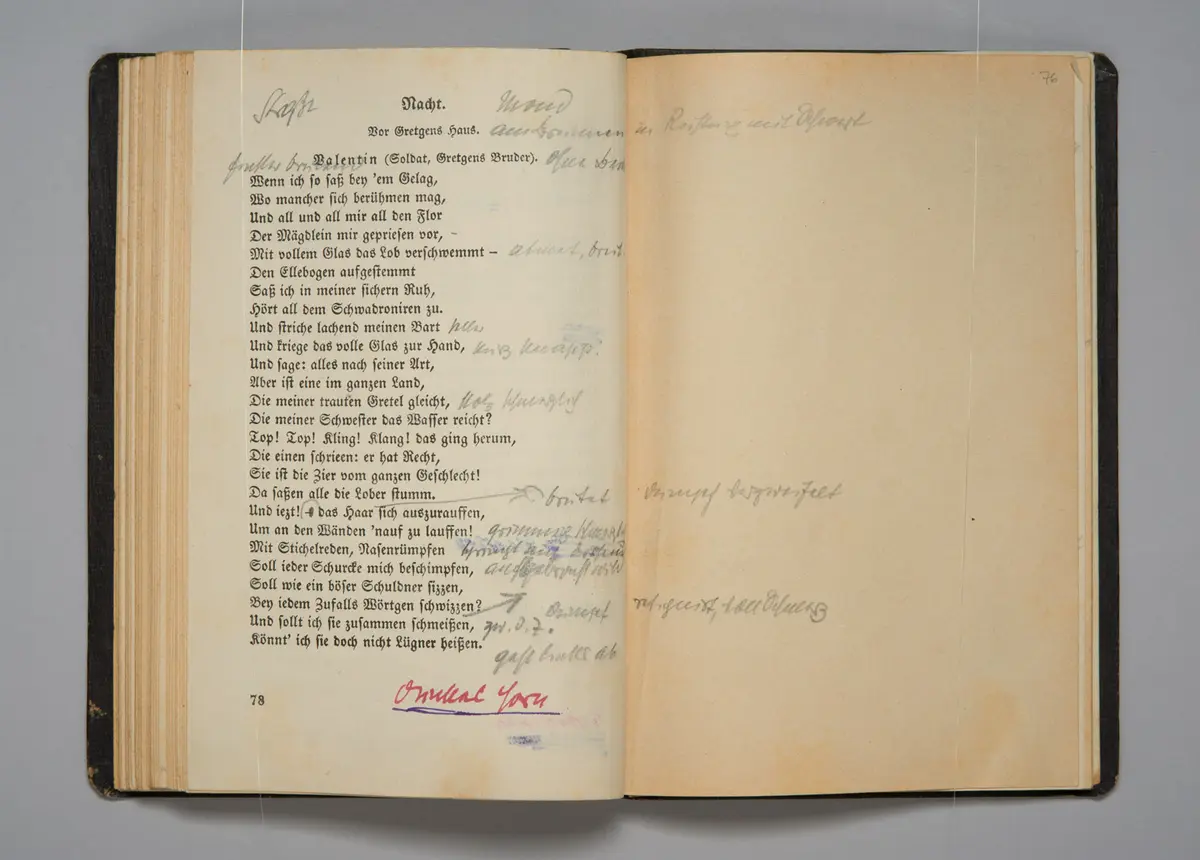 76
Straße Nacht. Mond
Vor Gretgens Haus. ankommen in Rüstung mit Schwert
Valentin (Soldat, Gretgens Bruder).
Wenn ich so saß bey 'em Gelag,
Wo mancher sich berühmen mag,
Und all und all mir all den Flor
Der Mägdlein mir gepriesen vor,
Mit vollem Glas das Lob verschwemmt – atmet,
Den Ellebogen aufgestemmt
Saß ich in meiner sichern Ruh,
Hört all dem Schwadroniren zu.
Und striche lachend meinen Bart
Und kriege das volle Glas zur Hand, kurz knapp!
Und sage: alles nach seiner Art,
Aber ist eine im ganzen Land,
Die meiner trauten Gretel gleicht, stolz schmerzlich
Die meiner Schwester das Wasser reicht?
Top! Top! Kling! Klang! das ging herum,
Die einen schrieen: er hat Recht,
Sie ist die Zier vom ganzen Geschlecht!
Da saßen alle die Lober stumm. brütet dumpf verzweifelt
Und iezt! das Haar sich auszurauffen,
Um an den Wänden 'nauf zu lauffen! grimmig
Mit Stichelreden, Nasenrümpfen
Soll ieder Schurcke mich beschimpfen,
Soll wie ein böser Schuldner sizzen,
Bey iedem Zufalls Wörtgen schwizzen? dumpf resigniert, voll Schmerz
Und sollt ich sie zusammen schmeißen,
Könnt' ich sie doch nicht Lügner heißen.
geht links ab
78 Dunkel Horn